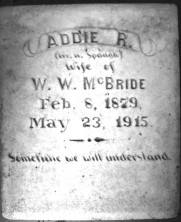 ADDIE R.
Wife of
W. W. McBRIDE
Feb. 8, 1879,
May 23, 1915.
Sometime we will understand.